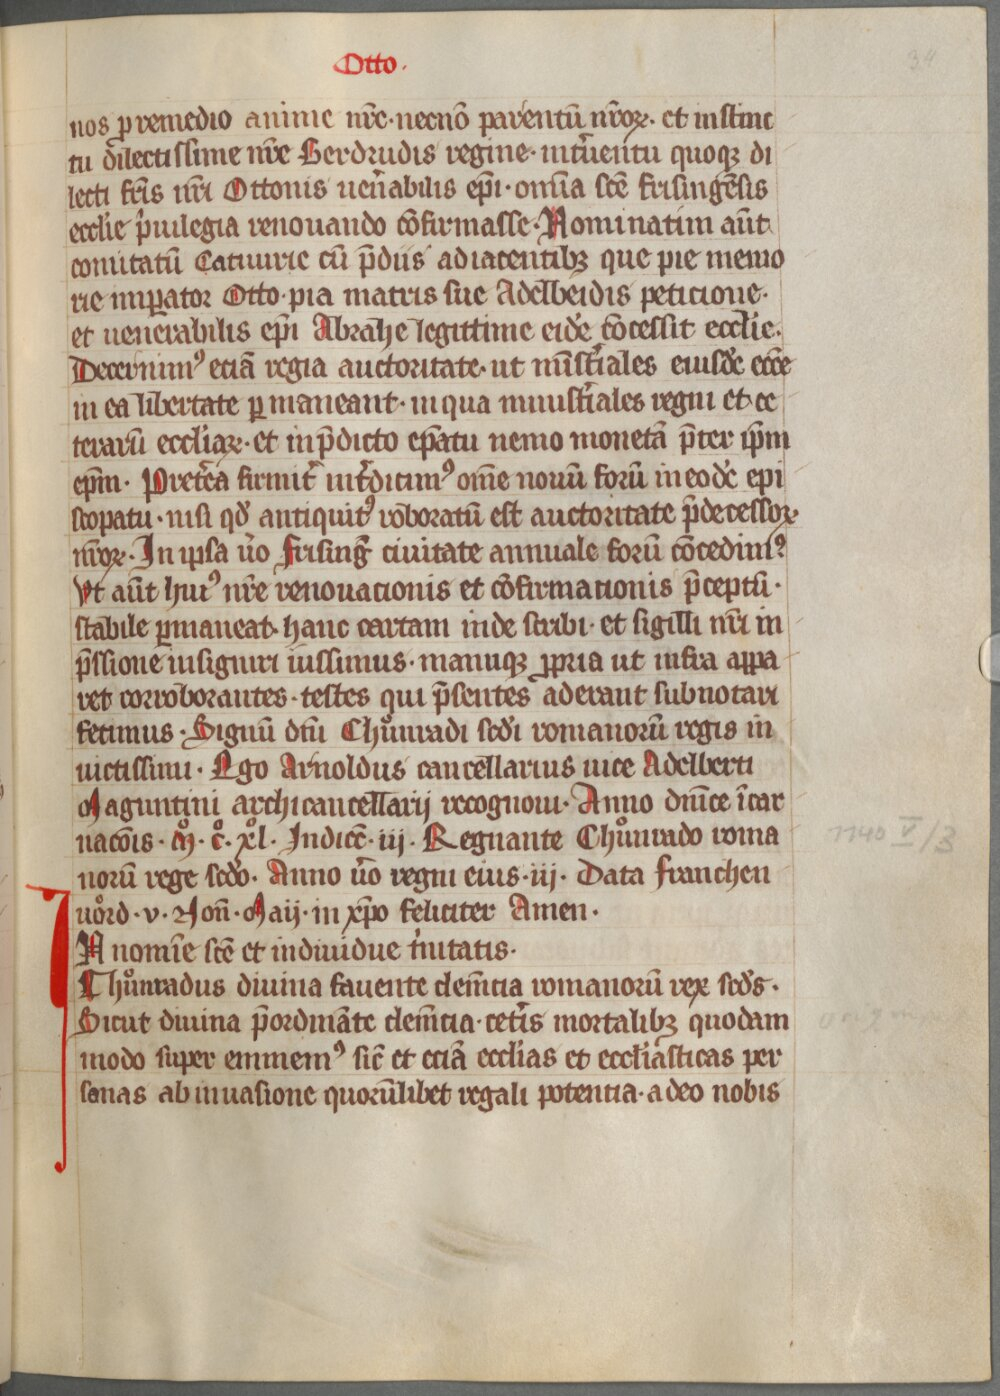 Otto.
34
nos p remedio anime nr̄e · necnō parentū nr̄oꝝ · et instinc
tu dilectissime nr̄e Gerdrudis regine · int̄uentu quoqꝫ di
lecti fr̄is nr̄i Ottonis uen̄abilis ep̄i · om̄ia sc̄e frisingēsis
eccl̄ie p̄uilegia renouando ꝯ̄firmasse · Nominatim aūt
comitatū Catuurie cū p̄diis adiacentibꝫ que pie memo
rie imꝑator Otto · pia matris sue Adelheidis peticione ·
et uenerabilis ep̄i Abrahe legittime eidē ꝯ̄cessit eccl̄ie .
Decernimꝰ eciā regia auctoritate · ut minist̄iales eiusdē ecc̄e
in ea libertate ꝑmaneant · in qua minist̄iales regni et ce
terarū eccl̄iaꝝ · et in p̄dicto ep̄atu nemo monetā p̄ter ip̄m
ep̄m · Pret̄ea firmit̄ int̄dicimꝰ om̄e nouū forū in eodē epi
scopatu · nisi qd̄ antiquitꝰ roboratū est auctoritate p̄decessoꝝ
nr̄oꝝ · In ipsa ūo frisinḡ ciuitate annuale forū ꝯ̄cedimꝰ
Vt aūt huiꝰ nr̄e renouacionis et ꝯ̄firmacionis p̄ceptū ·
stabile ꝑmaneat · hanc cartam inde scribi · et sigilli nr̄i in
p̄ssione insigniri iussimus · manuqꝫ ꝓpria ut infra appa
ret corroborantes · testes qui p̄sentes aderant subnotari
fecimus · Signū dn̄i Chuͦnradi sēdi romanorū regis in
uictissimi · Ego Arnoldus cancellarius uice Adelberti
Maguntini archicancellarij recognoui · Anno dn̄ice īcar
nacōis · mͦ · cͦ · xͦl · Indicc̄ · iij · Regnante Chuͦnrado roma
norū rege sēdo · Anno ūo regni eius · iij · Data franchen
uord · v · Non̄ · Maij · in xp̄o feliciter Amen ·
1140 V/3
IN nomīe sc̄e et indiuidue t̄nitatis ·
Chuͦnradus diuina fauente clem̄tia romanorū rex sēds ·
Sicut diuina p̄ordināte clem̄tia · cet̄is mortalibꝫ quodam
modo super eminemꝰ sic̄ et eciā eccl̄ias et eccl̄iasticas per
sonas ab inuasione quorūlibet regali potentia · adeo nobis